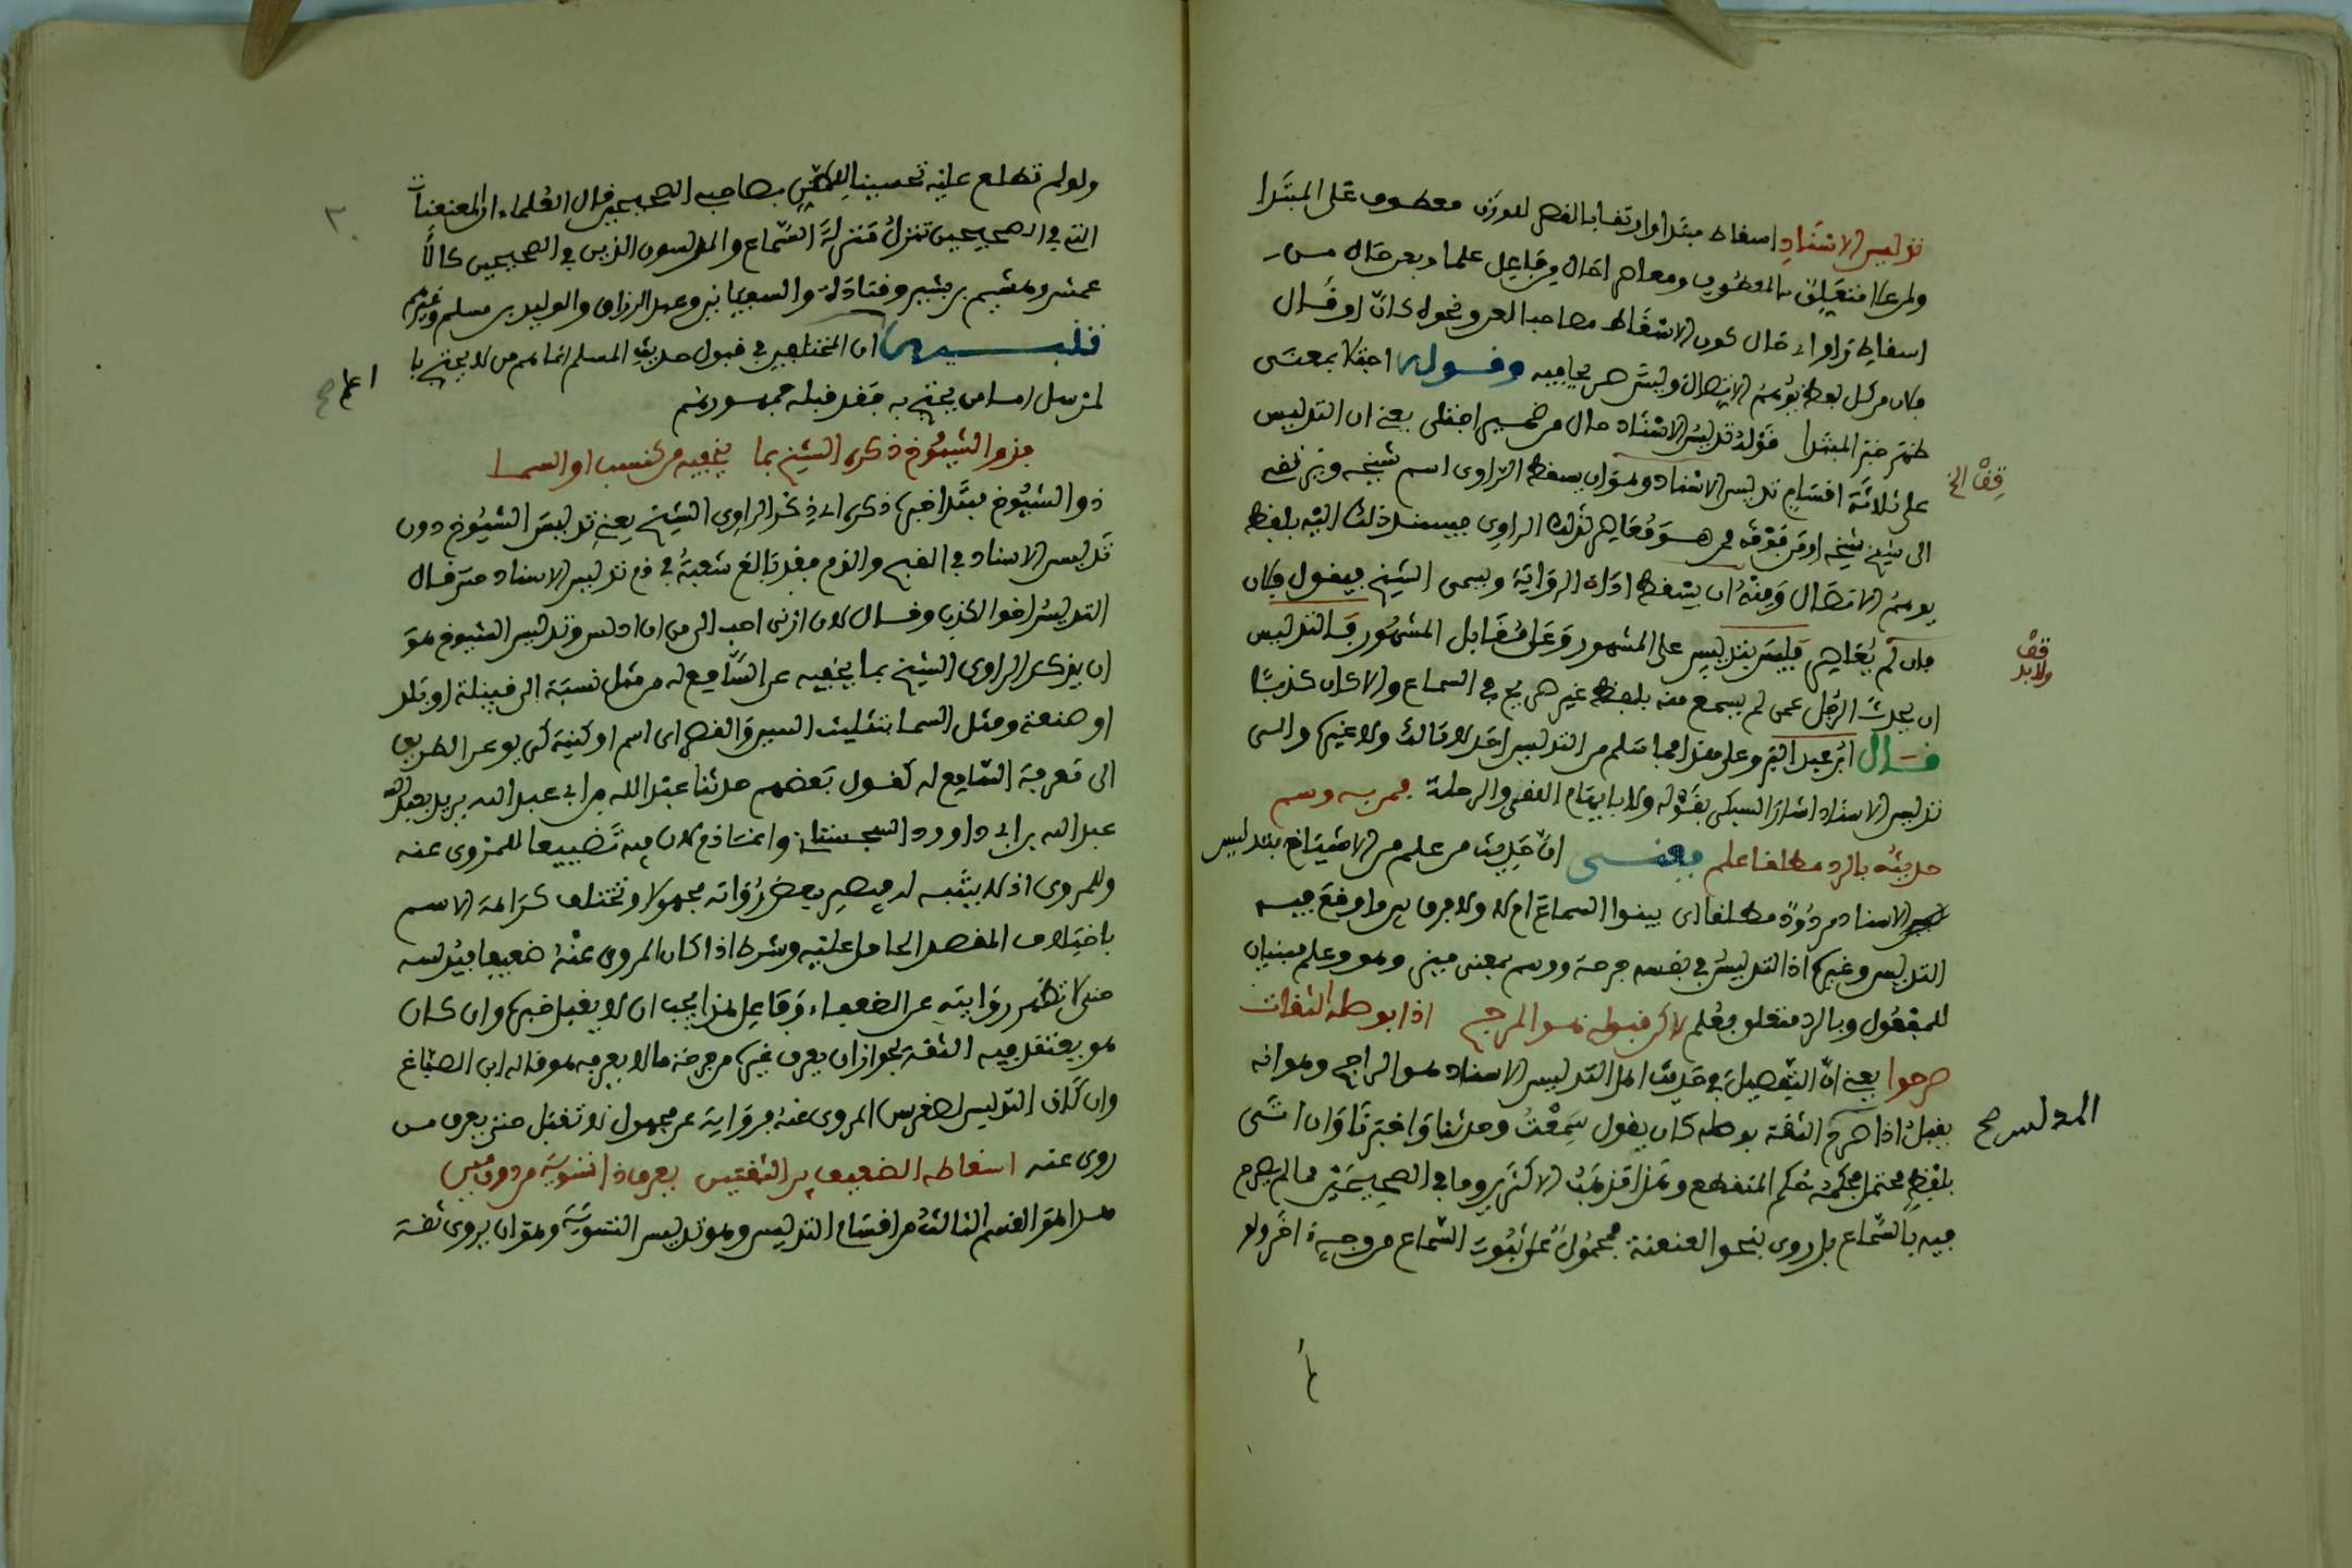 تدليس الاسناد اسقاط مبتدا وارتفاء بالقصر للوزن معطوف على المبتدا
ولمن عا متعلق بالمعطوف ومعاصرا حال من فاعل علما وبعن حال من
اسقاط راو اي حال كون الاسقاط مصاحبا لعن ونحوه كأنّ او قال
فلان من كل لفظ يوهم الاتصال وليس صريحا فيه وقوله اختلا بمعنى
ظهر خبر المبتدا قوله تدليس الاسناد حال من ضمير اختلى يعني ان التدليس
على ثلاثة اقسام تدليس الاسناد وهو ان يسقط الراوي اسم شيخه ويرتقي
الى شيخ شيخه او من فوقه ممن هو معاصر لذلك الراوي فيسند ذلك اليه بلفظ
يوهم الاتصال ومنه ان يسقط اداة الرواية ويسمى الشيخ فيقول فلان
فان لم يعاصر فليس بتدليس على المشهور وعلى مقابل المشهور فالتدليس
ان يحدث الرجل عمن لم يسمع منه بلفظ غير صريح في السماع والا كان كذبا
قال ابن عبد البر وعلى هذا فما سلم من التدليس احد لا مالك ولا غيره والى
تدليس الاسناد اشار السبكي بقوله ولا بايهام اللقي والرحلة فمن به وسم
حديثه بالرد مطلقا علم يعني انّ حديث من علم من الاشياخ بتدليس
الاسناد مردود مطلقا اي بينوا السماع ام لا ولا فرق بين ما وقع فيه
التدليس وغيره اذ التدليس في نفسه جرحة ووسم بمعنى مبني وهو وعلم مبنيان
للمفعول وبالرد متعلق بعلم لاكن قبوله هو المرجح اذا بوصله الثقات
صرحوا يعني انّ التفصيل في حديث اهل التدليس الاسناد هو الراجح وهو انه
يقبل اذا صرح الثقة بوصله كان يقول سمعت وحدثنا واخبرنا وان اتى
بلفظ محتمل فحكمه حكم المنقطع وهذا مذهب الاكثرين وما في الصحيحين مما لم يصرح
فيه بالسماع بل روى بنحو العنعنة محمول على ثبوت السماع من وجه اخر ولو
قف الخ
قف ولابد
المدلس صح
ولو لم نطلع عليه تحسينا للظن بصاحب الصحيحين قال العلماء ان المعنعنات
التي في الصحيحين تنزل منزلة السماع والمدلسون الذين في الصحيحين كالا
عمش وهشيم بن بشير وقتادة والسفيانين وعبد الرزاق والوليد بن مسلم وغيرهم
تنبيه ان المختلفين في قبول حديث المسلم انما هم من لا يحتج با
لمرسل اما من يحتج به فقد قبله جمهورهم
اعلم صح
فذو الشيوخ ذكره الشيخ بما يخفيه من كنسب او السما
ذو الشيوخ مبتدا خبره ذكره اي ذكر الراوي الشيخ يعني تدليس الشيوخ دون
تدليس الاسناد في القبح والذم فقد بالغ شعبة في ذم تدليس الاسناد حتى قال
التدليس اخو الكذب وقال لان ازني احب الي من ان ادلس وتدليس الشيوخ هو
ان يذكر الراوي الشيخ بما يخفيه عن السامع له من مثل نسبة الى قبيلة او بلد
او صنعة ومثل السما بتثليث السين والقصر اي اسم او كنية كي يوعر الطريق
الى معرفة السامع له كقول بعضهم حدثنا عبد الله بن ابي عبد الله يريد بعبد الله
عبد الله بن ابي داوود السجستاني وانما ذم لان فيه تضييعا للمروي عنه
وللمروي اذ لا يثبه له فيصير بعض رواته مجهولا وتختلف كراهة الاسم
باختلاف المقصد الحامل عليه وشرط اذا كان المروي عنه ضعيفا فيدلسه
حتى لا تظهر روايته عن الضعفاء وفاعل هذا يجب ان لا يقبل خبره وان كان
هو يعتقد فيه الثقة لجواز ان يعرف غيره من جرحه ما لا يعرفه هو قاله ابن الصباغ
وان كان التدليس لصغر سن المروي عنه فرواية عن مجهول لا تقبل حتى يعرف من
روى عنه اسقاطه الضعيف بين الثقتين يعرف ذا تسوية من دون مين
هذا هو القسم الثالث من اقسام التدليس وهو تدليس التسوية وهو ان يروي ثقة